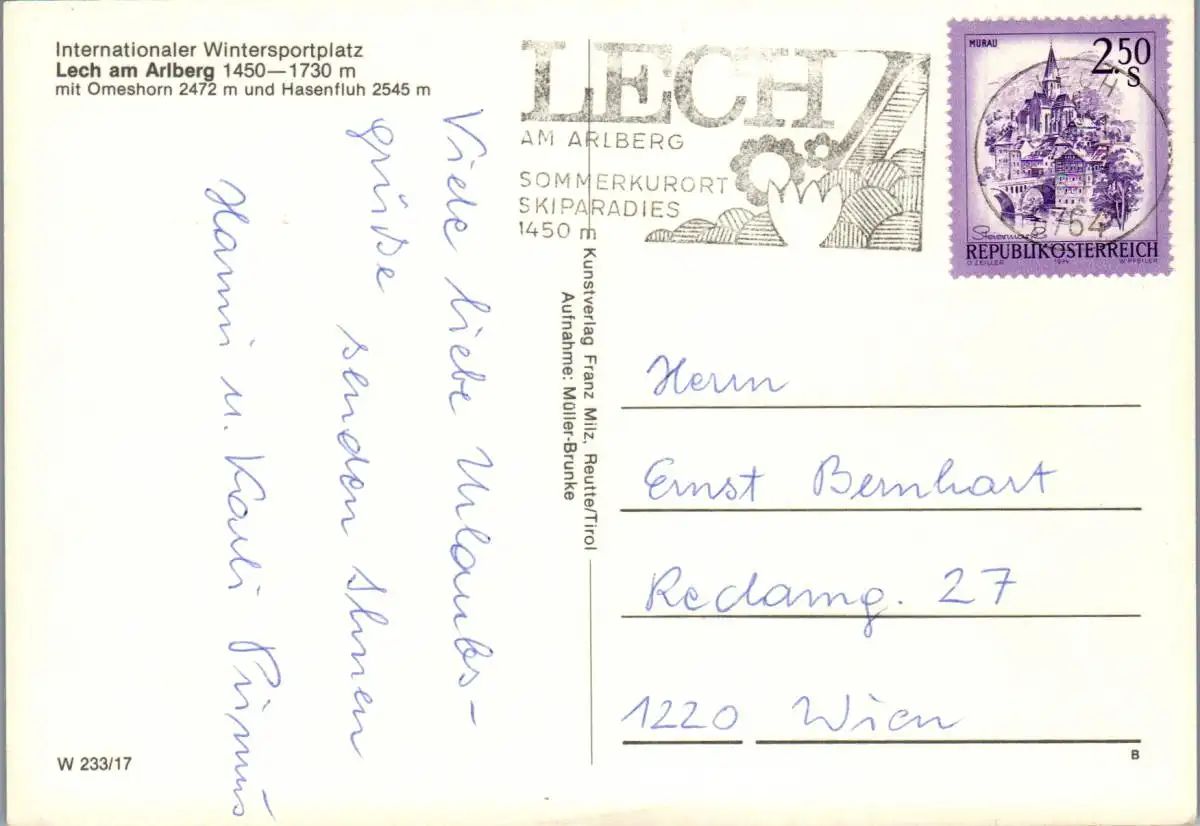 Internationaler Wintersportplatz
Lech am Arlberg 1450—1730 m
mit Omeshorn 2472 m und Hasenfluh 2545 m
Viele liebe Urlaubs-
grüße
senden Ihnen
Hanni u. Karli Primus
W 233/17
Kunstverlag Franz Milz, Reutte/Tirol
Aufnahme: Müller-Brunke
LECH
AM ARLBERG
SOMMERKURORT
SKIPARADIES
1450 m
MURAU
2.50
S
LECH
6764
Steiermark
REPUBLIK ÖSTERREICH
O. ZEILLER 1974 W. PFEILER
Herrn
Ernst Bernhart
Reclamg. 27
1220 Wien
B